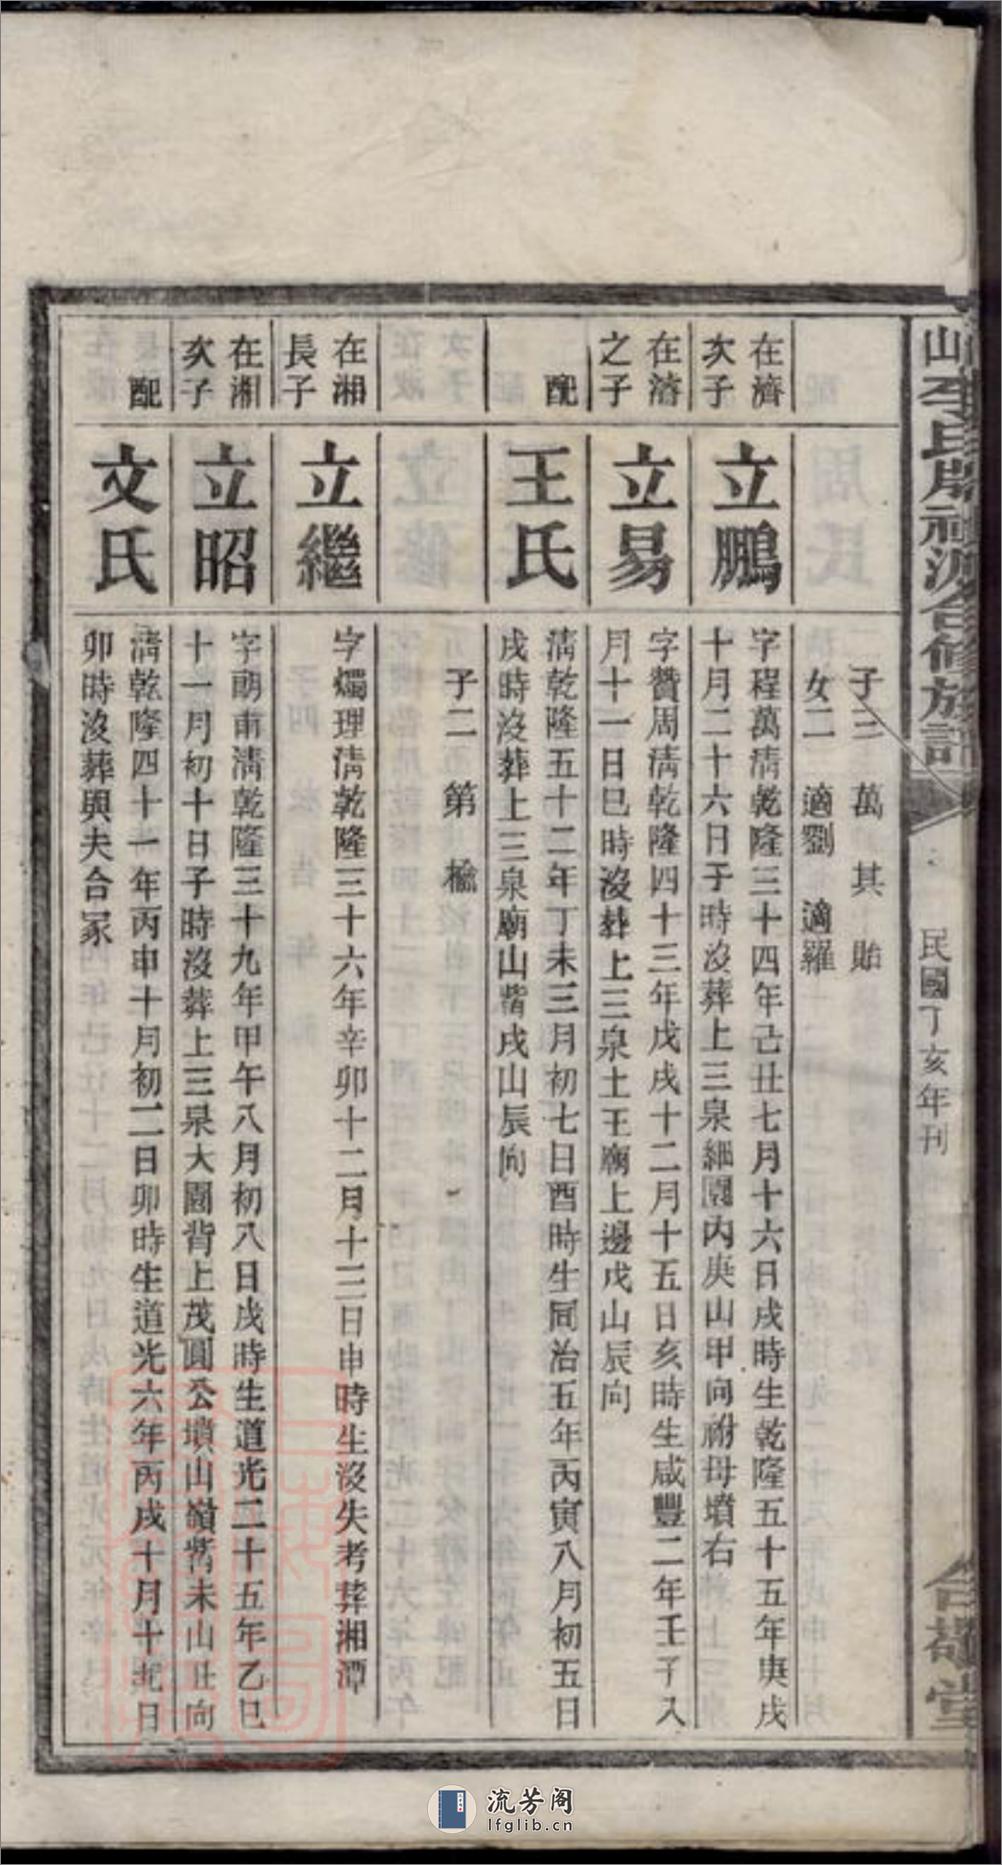 山李氏牌祠派合修族譜
民國丁亥年刊
合敬堂
子三 萬 其 貽
女二 適劉 適羅
在濟次子
立鵬
字程萬清乾隆三十四年己丑七月十六日戌時生乾隆五十五年庚戌
十月二十六日子時沒葬上三泉細園內庚山甲向祔母墳右
在濬之子
立易
字贊周清乾隆四十三年戊戌十二月十五日亥時生咸豐二年壬子入
月十一日巳時沒葬上三泉土王廟上邊戊山辰向
配
王氏
清乾隆五十二年丁未三月初七日酉時生同治五年丙寅八月初五日
戌時沒葬上三泉廟山背戌山辰向
子二 第 楡
在湘長子
立繼
字燭理清乾隆三十六年辛卯十二月十三日申時生沒失考葬湘潭
在湘次子
立昭
字朗前清乾隆三十九年甲午八月初八日戌時生道光二十五年乙巳
十一月初十日子時沒葬上三泉大園背上茂圓公墳山嶺背未山丑向
配
文氏
清乾隆四十一年丙申十月初二日卯時生道光六年丙戌十月十九日
卯時沒葬與夫合冢
流芳阁
lfglib.cn